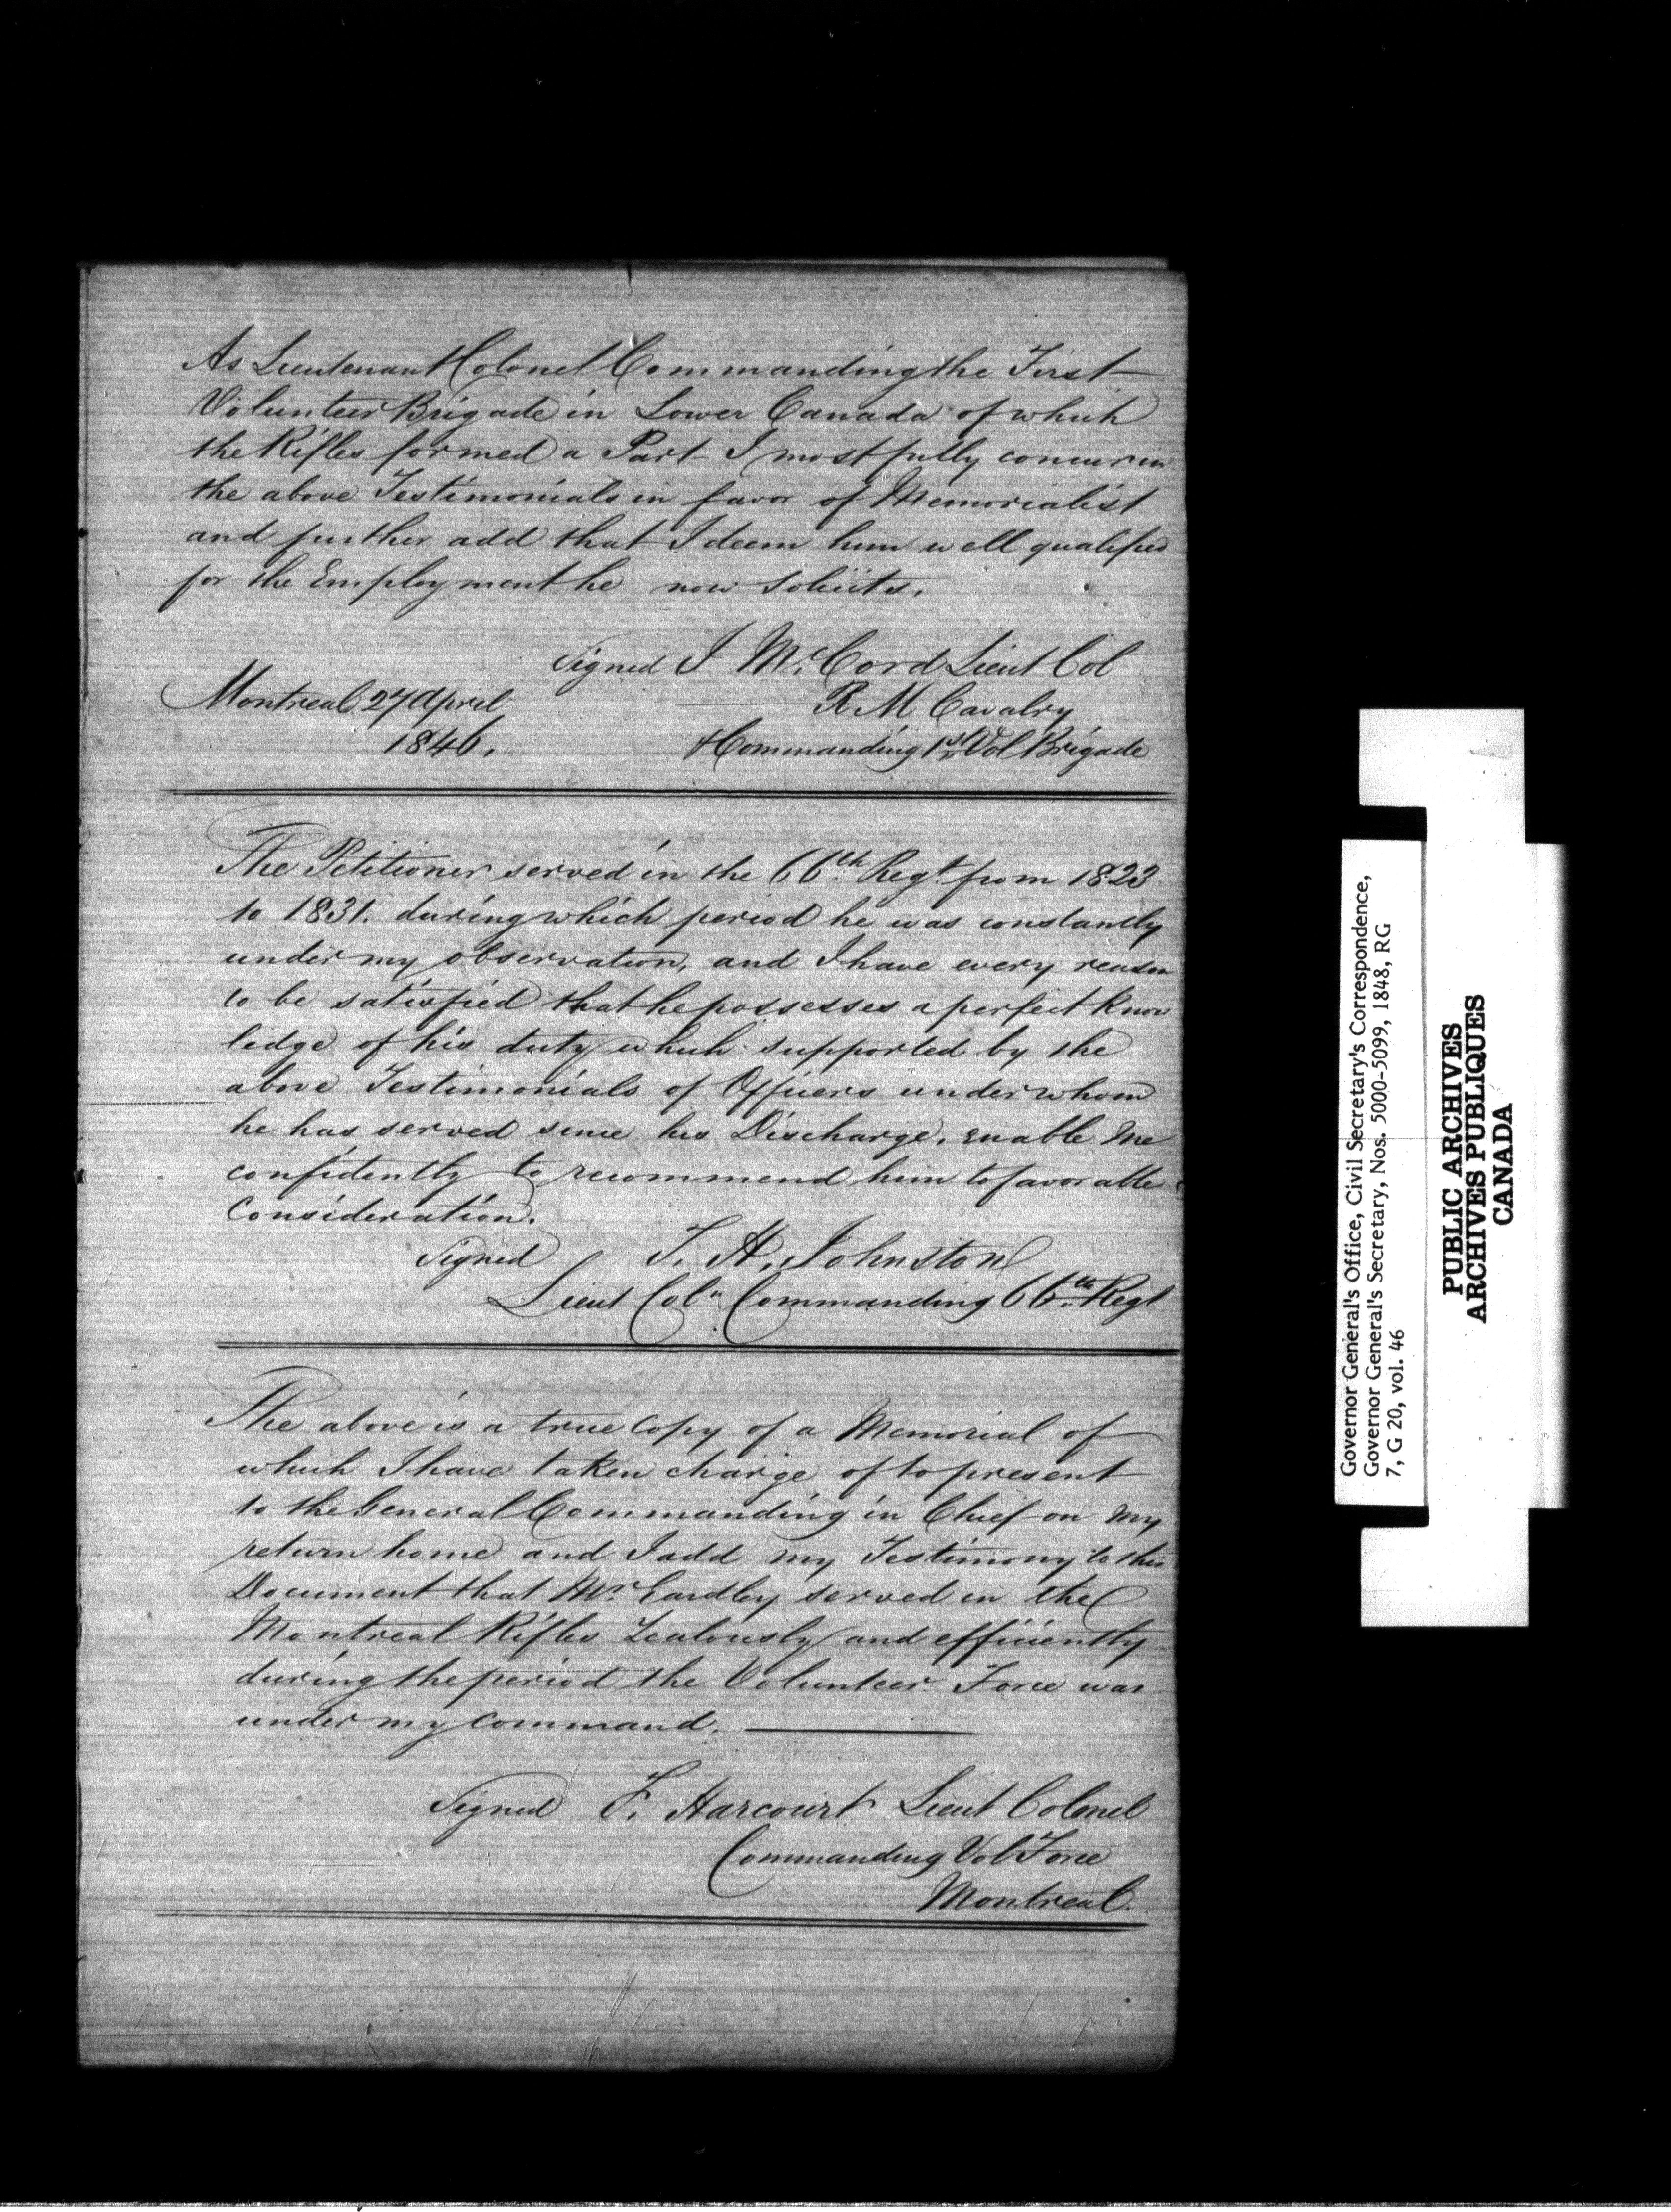 As Lieutenant Colonel Commanding the First
Volunteer Brigade in Lower Canada of which
the Rifles formed a Part I most fully concur in
the above Testimonials in favor of Memorialist
and further add that I deem him well qualified
for the Employment he now Solicits.
Signed J. McCord Lieut Col
Montreal 27 April
R M Cavalry
1846.
& Commanding 1st Vol Brigade
The Petitioner served in the 66th Regt from 1823
to 1831. during which period he was constantly
under my observation, and I have every reason
to be satisfied that he possesses a perfect know
ledge of his duty which supported by the
above Testimonials of Officers under whom
he has served since his Discharge, enable me
confidently to recommend him to favorable
Consideration.
Signed T. H. Johnston
Lieut Coln Commanding 66th Regt
The above is a true Copy of a Memorial of
which I have taken charge of to present
to the General Commanding in Chief on my
return home and I add my Testimony to this
Document that Mr. Eardley served in the
Montreal Rifles Zealously and efficiently
during the period the Volunteer Force was
under my Command.
Signed F. Harcourt Lieut Colonel
Commanding Vol Force
Montreal.
Governor General's Office, Civil Secretary's Correspondence,
Governor General's Secretary, Nos. 5000-5099, 1848, RG
7, G 20, vol. 46
PUBLIC ARCHIVES
ARCHIVES PUBLIQUES
CANADA